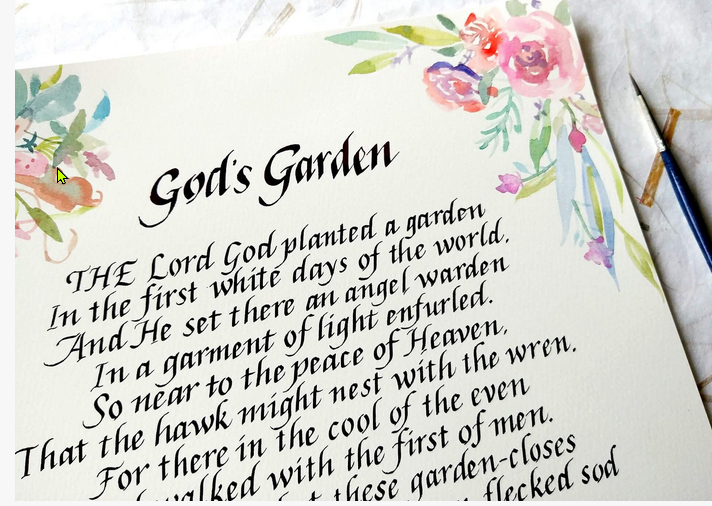 God's Garden
THE Lord God planted a garden
In the first white days of the world.
And He set there an angel warden
In a garment of light enfurled.
So near to the peace of Heaven,
That the hawk might nest with the wren.
For there in the cool of the even
walked with the first of men.
these garden-closes
flecked sod